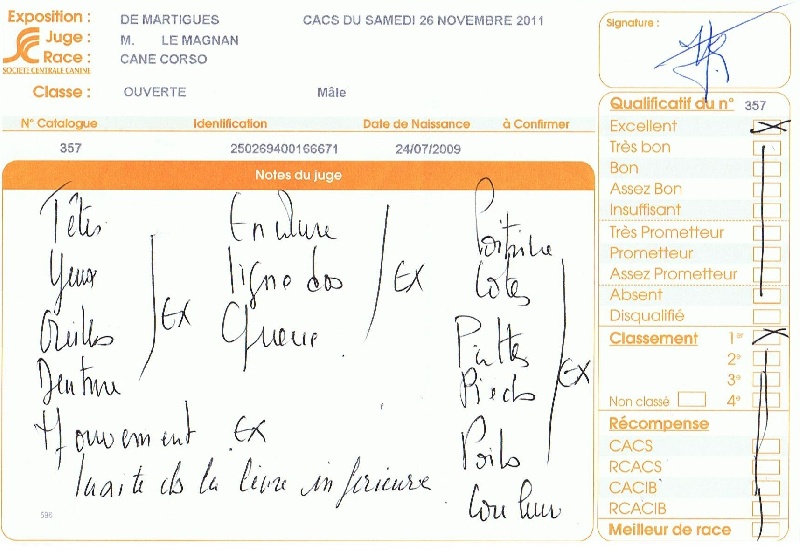 Exposition : DE MARTIGUES CACS DU SAMEDI 26 NOVEMBRE 2011
Juge : M. LE MAGNAN
Race : CANE CORSO
SOCIETE CENTRALE CANINE
Classe : OUVERTE Mâle
N° Catalogue Identification Date de Naissance à Confirmer
357 250269400166671 24/07/2009
Notes du juge
Têtes Encolure Poitrine
Yeux ligne dos EX Cotes
Oreilles EX Queue Pattes
Denture Pieds EX
Mouvement EX Poils
de la lèvre inférieure Couleur
598
Signature :
Qualificatif du n° 357
Excellent
Très bon
Bon
Assez Bon
Insuffisant
Très Prometteur
Prometteur
Assez Prometteur
Absent
Disqualifié
Classement 1er
2e
3e
Non classé 4e
Récompense
CACS
RCACS
CACIB
RCACIB
Meilleur de race